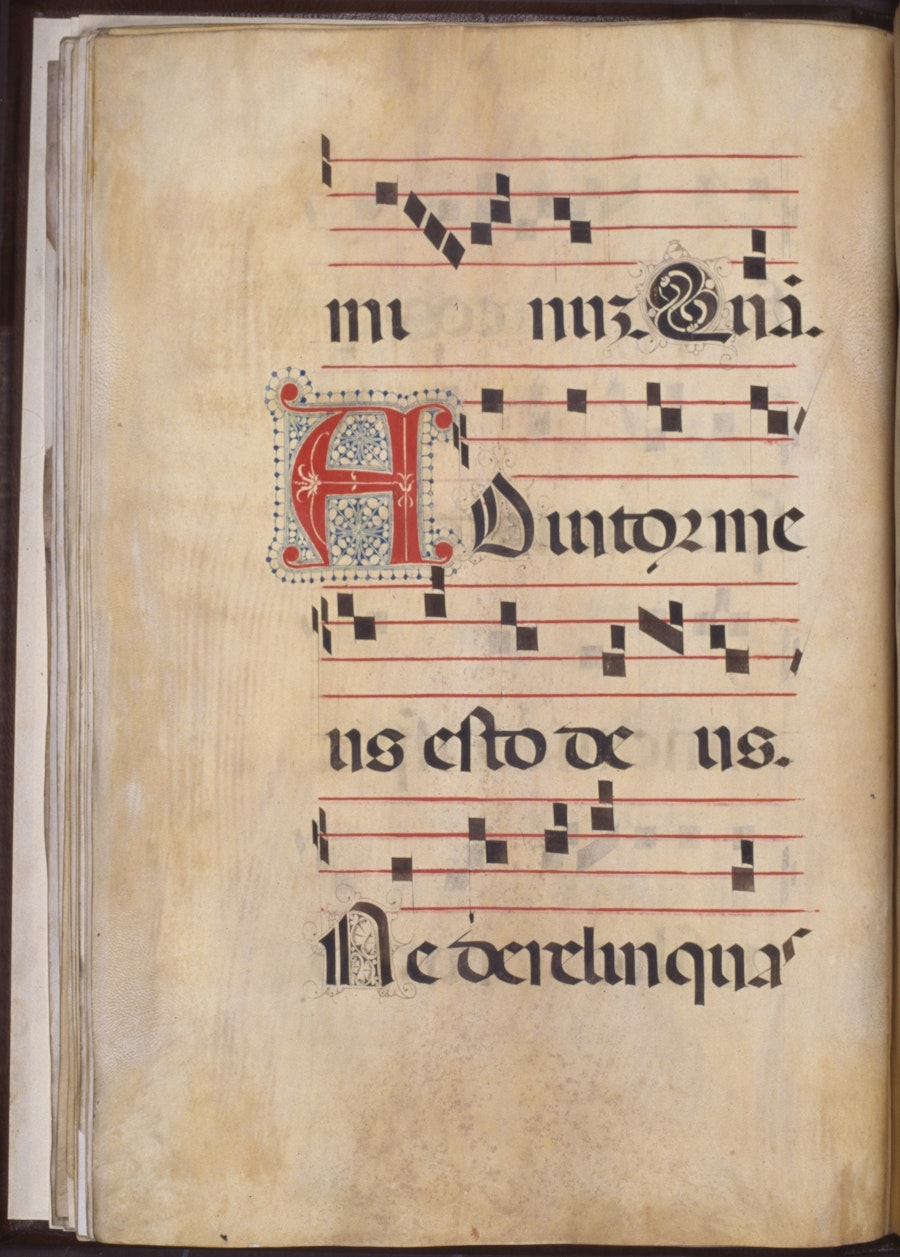 mi nuʒ. Qnā.
ADiutor me
us esto de us.
Ne derelinquas